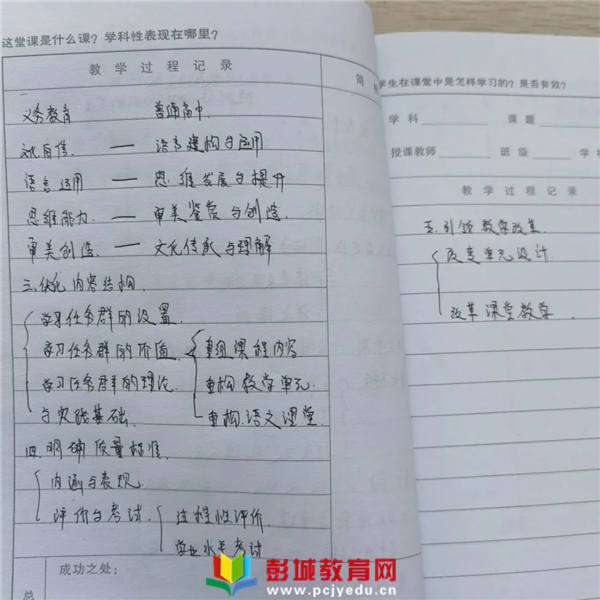 这堂课是什么课？学科性表现在哪里？
教学过程记录
简
义务教育 普通高中
文化自信 — 语言建构与运用
语言运用 — 思维发展与提升
思维能力 — 审美鉴赏与创造
审美创造 — 文化传承与理解
三.优化内容结构
学习任务群的设置
学习任务群的价值 重组课程内容
学习任务群的理论 重构教学单元
与实践基础 重构语文课堂
四.明确质量标准
内涵与表现
评价与考试 过程性评价
学业水平考试
总
成功之处：
学生在课堂中是怎样学习的？是否有效？
学科 课题
授课教师 班级 学
教学过程记录
五.引领教学改革
改变单元设计
改革课堂教学
彭城教育网
www.pcjyedu.cn